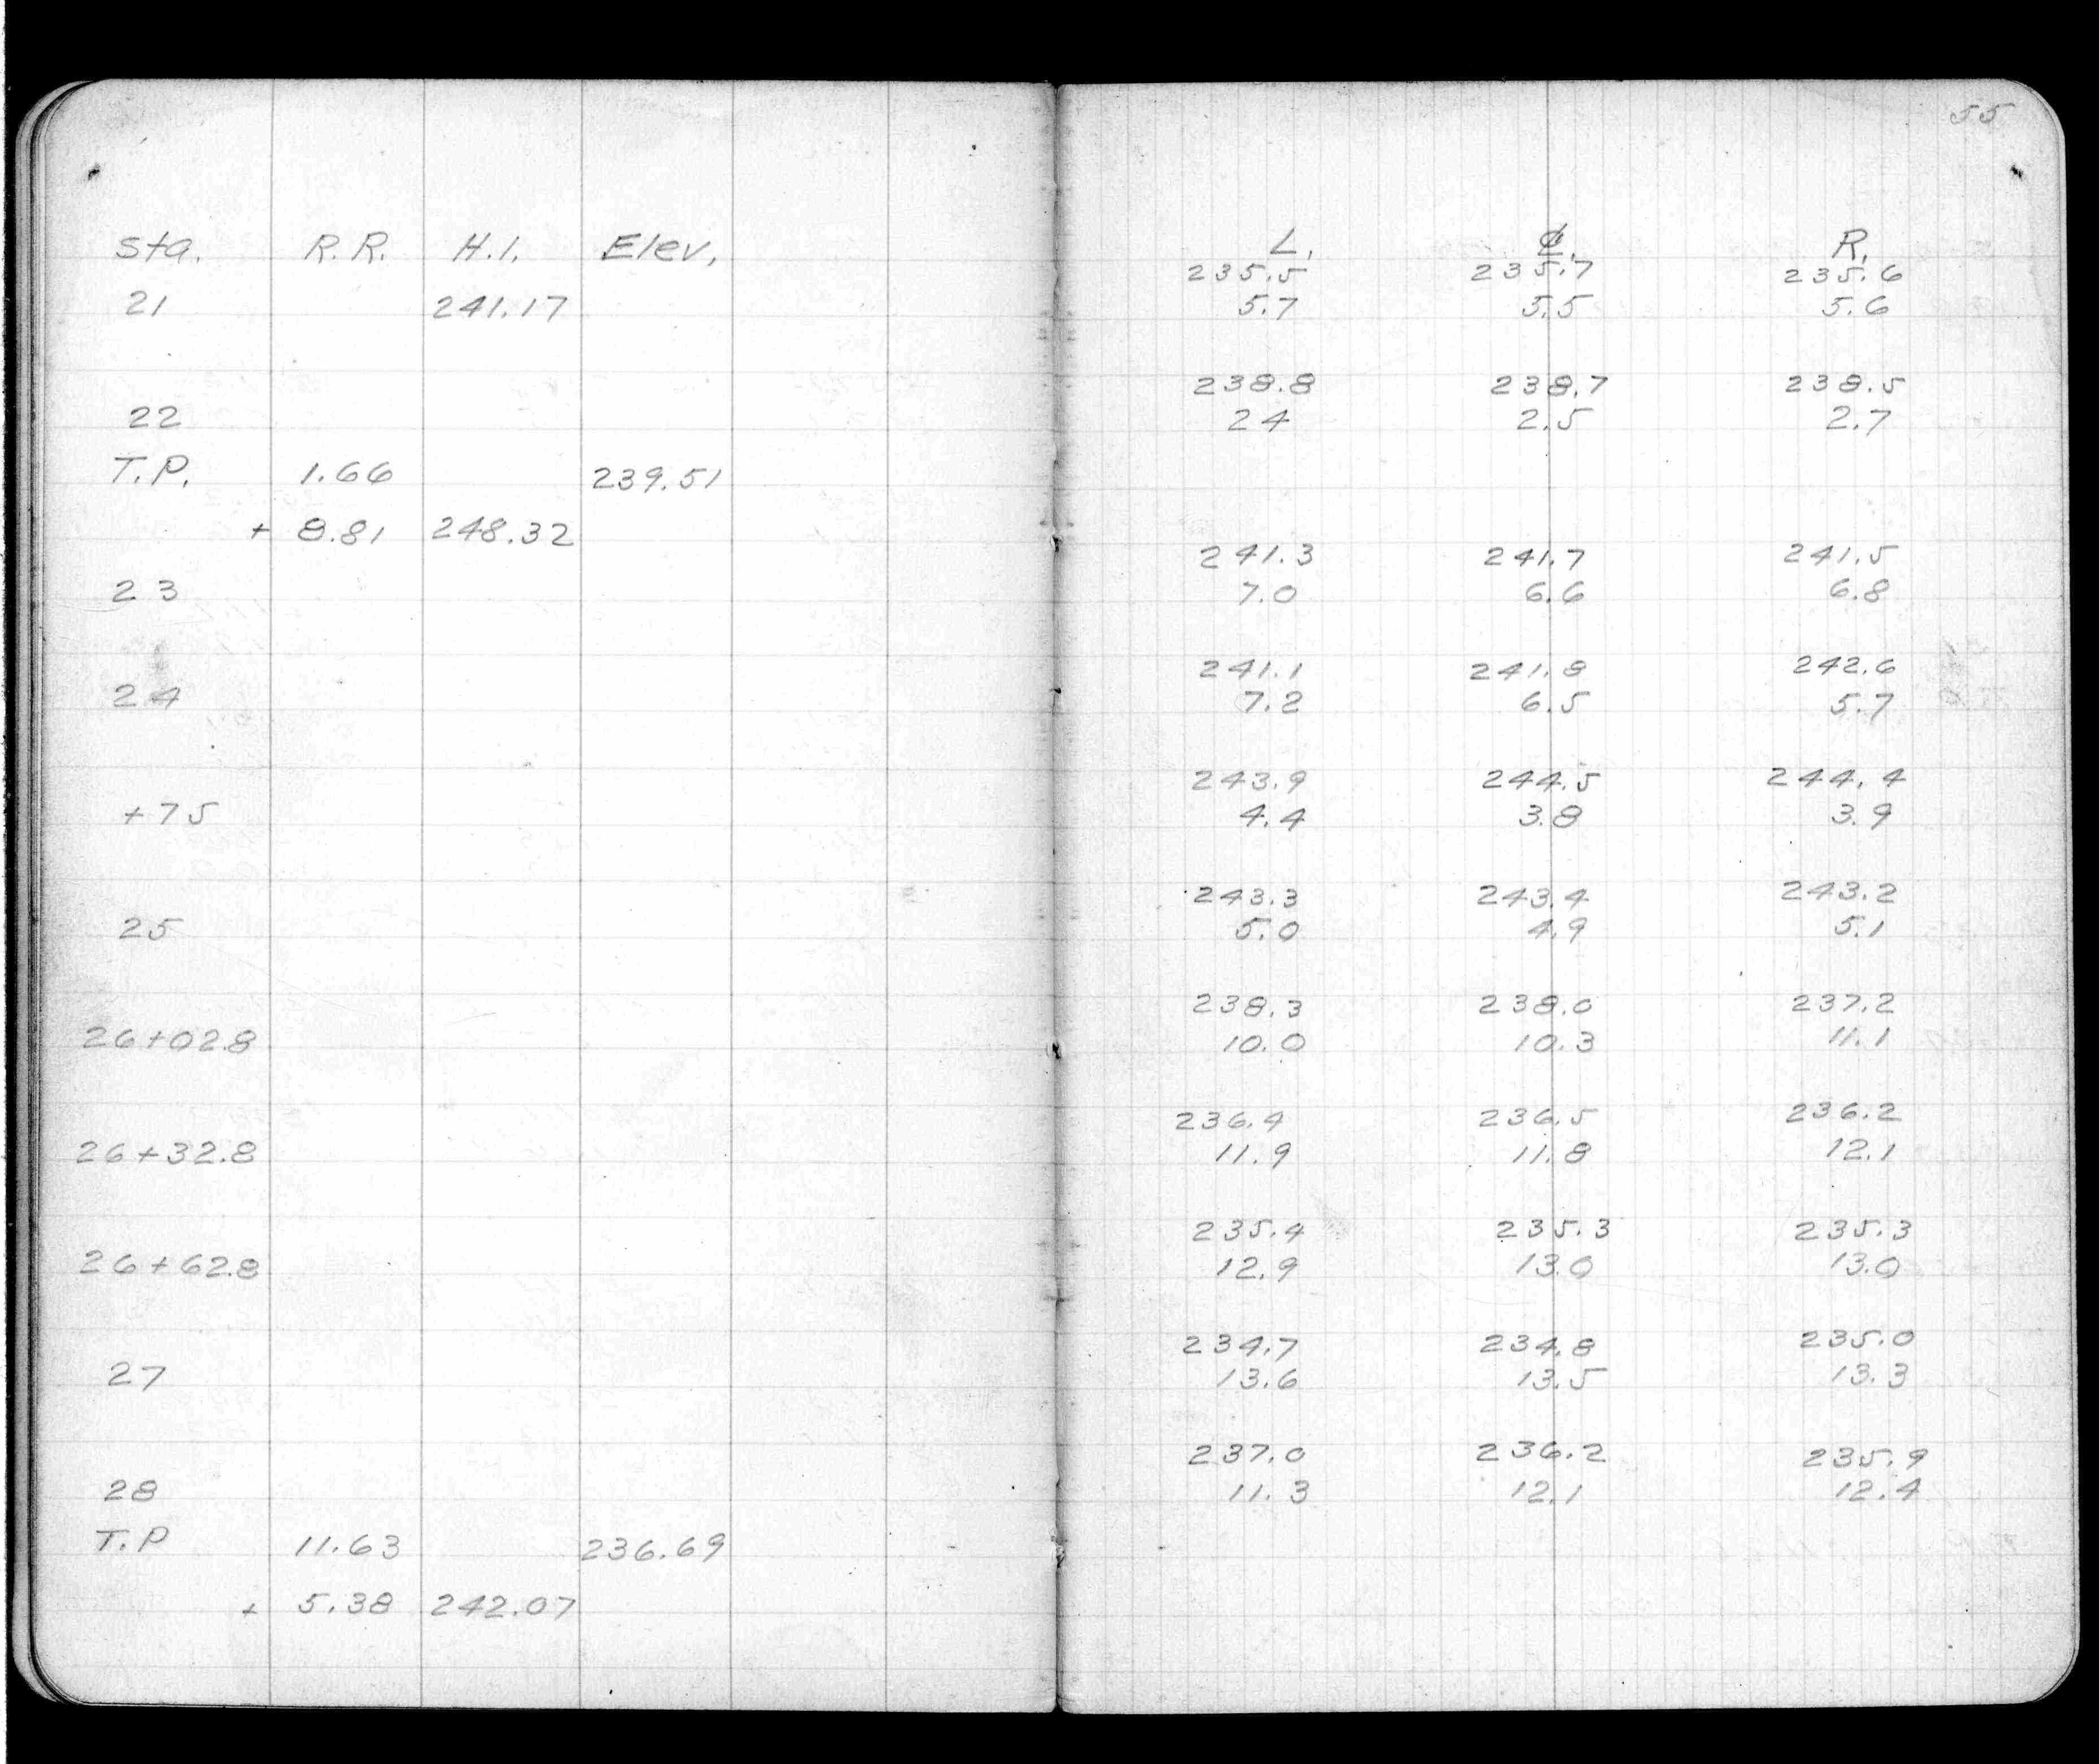 55
Sta. R.R. H.I. Elev. L. ℄. R.
235.5 235.7 235.6
21 241.17 5.7 5.5 5.6
238.8 238.7 238.5
22 24 2.5 2.7
T.P. 1.66 239.51
+ 8.81 248.32
241.3 241.7 241.5
23 7.0 6.6 6.8
241.1 241.8 242.6
24 7.2 6.5 5.7
243.9 244.5 244.4
+75 4.4 3.8 3.9
243.3 243.4 243.2
25 5.0 4.9 5.1
238.3 238.0 237.2
26+02.8 10.0 10.3 11.1
236.4 236.5 236.2
26+32.8 11.9 11.8 12.1
235.4 235.3 235.3
26+62.8 12.9 13.0 13.0
234.7 234.8 235.0
27 13.6 13.5 13.3
237.0 236.2 235.9
28 11.3 12.1 12.4
T.P 11.63 236.69
+ 5.38 242.07